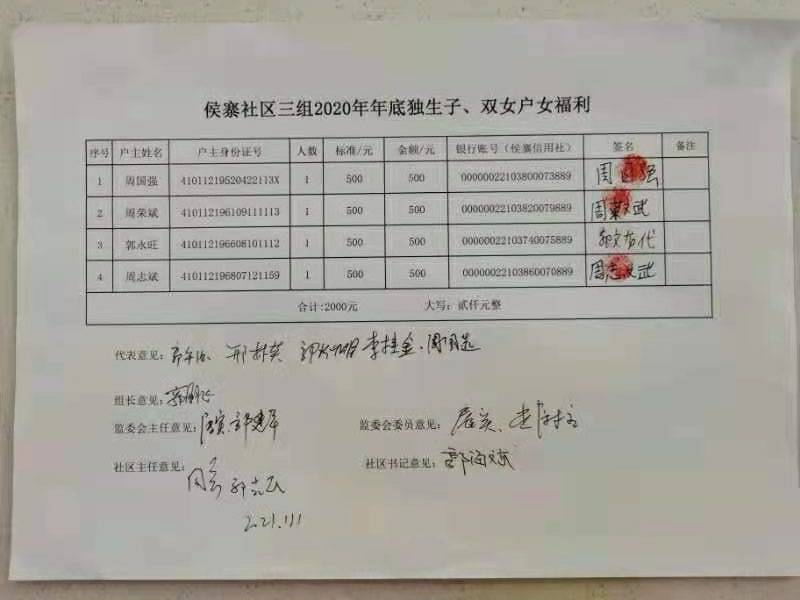 侯寨社区三组2020年年底独生子、双女户女福利
序号 户主姓名 户主身份证号 人数 标准/元 金额/元 银行账号（侯寨信用社） 签名 备注
1 周国强 41011219520422113X 1 500 500 00000022103800073889 周国强
2 周荣斌 410112196109111113 1 500 500 00000022103820079889 周荣斌
3 郭永旺 410112196608101112 1 500 500 00000022103740075889
4 周志斌 410112196807121159 1 500 500 00000022103860070889 周志斌
合计:2000元 大写：贰仟元整
代表意见： 李桂金
组长意见：
监委会主任意见： 监委会委员意见：
社区主任意见： 社区书记意见：
2021.1.1